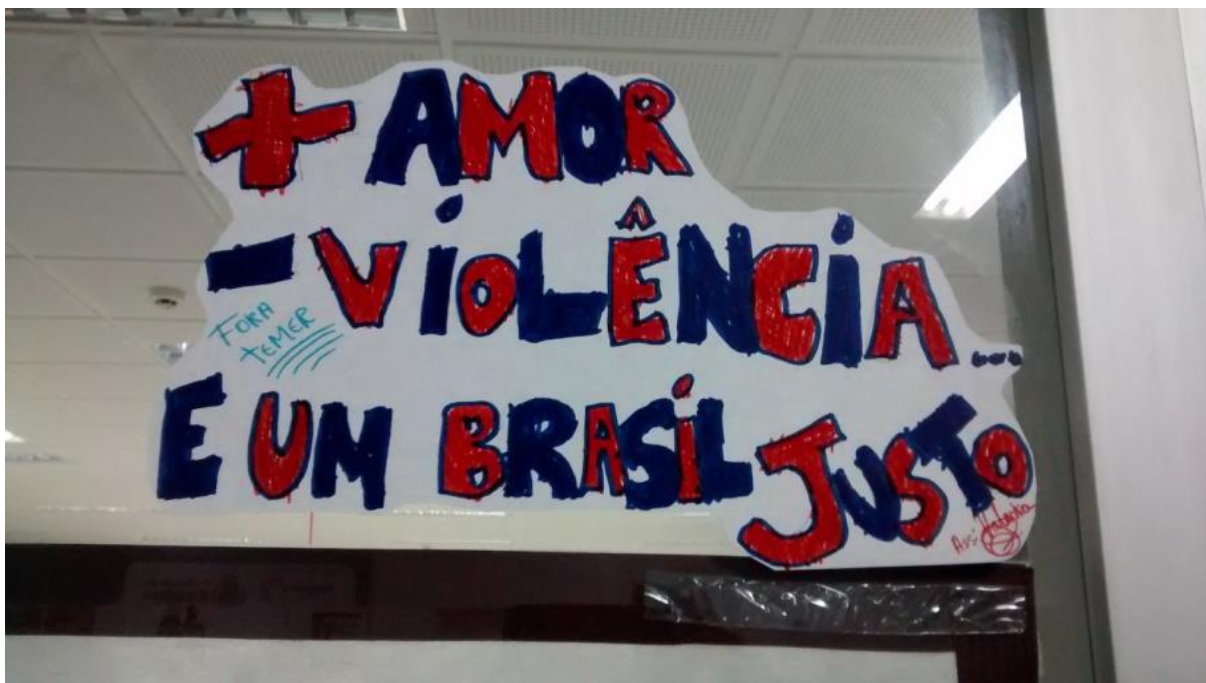 + AMOR
- VIOLÊNCIA...
FORA
TEMER
E UM BRASIL JUSTO
Ass: